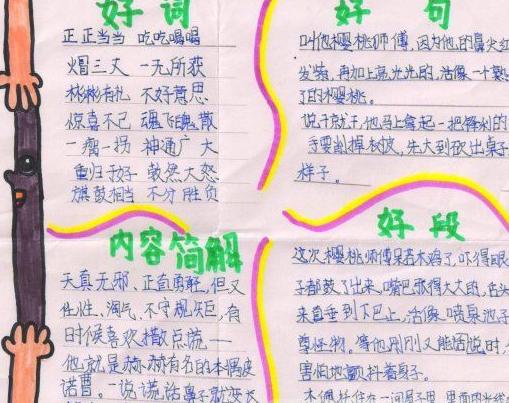 好词
正正当当 吃吃喝喝
火冒三丈 一无所获
彬彬有礼 不好意思
惊喜不已 魂飞魄散
一瘸一拐 神通广大
重归于好 勃然大怒
旗鼓相当 不分胜负
好句
叫他樱桃师傅,因为他的鼻尖红
发紫,再加上亮光光的,活像一个熟
了的樱桃。
说干就干,他马上拿起一把锋利的
要削掉树皮,先大到砍出桌子
样子。
内容简解
天真无邪、正直勇敢,但又
任性、淘气、不守规矩,有
时候喜欢撒点谎——
他就是赫赫有名的木偶皮
诺曹。一说谎话鼻子就变长
好段
这次樱桃师傅呆若木鸡了,吓得眼
子都鼓了出来,嘴巴张得大大的,舌头
来直垂到下巴上,活像喷泉池子
等怪物。等他刚刚又能话说时,
害怕地颤抖着身子。